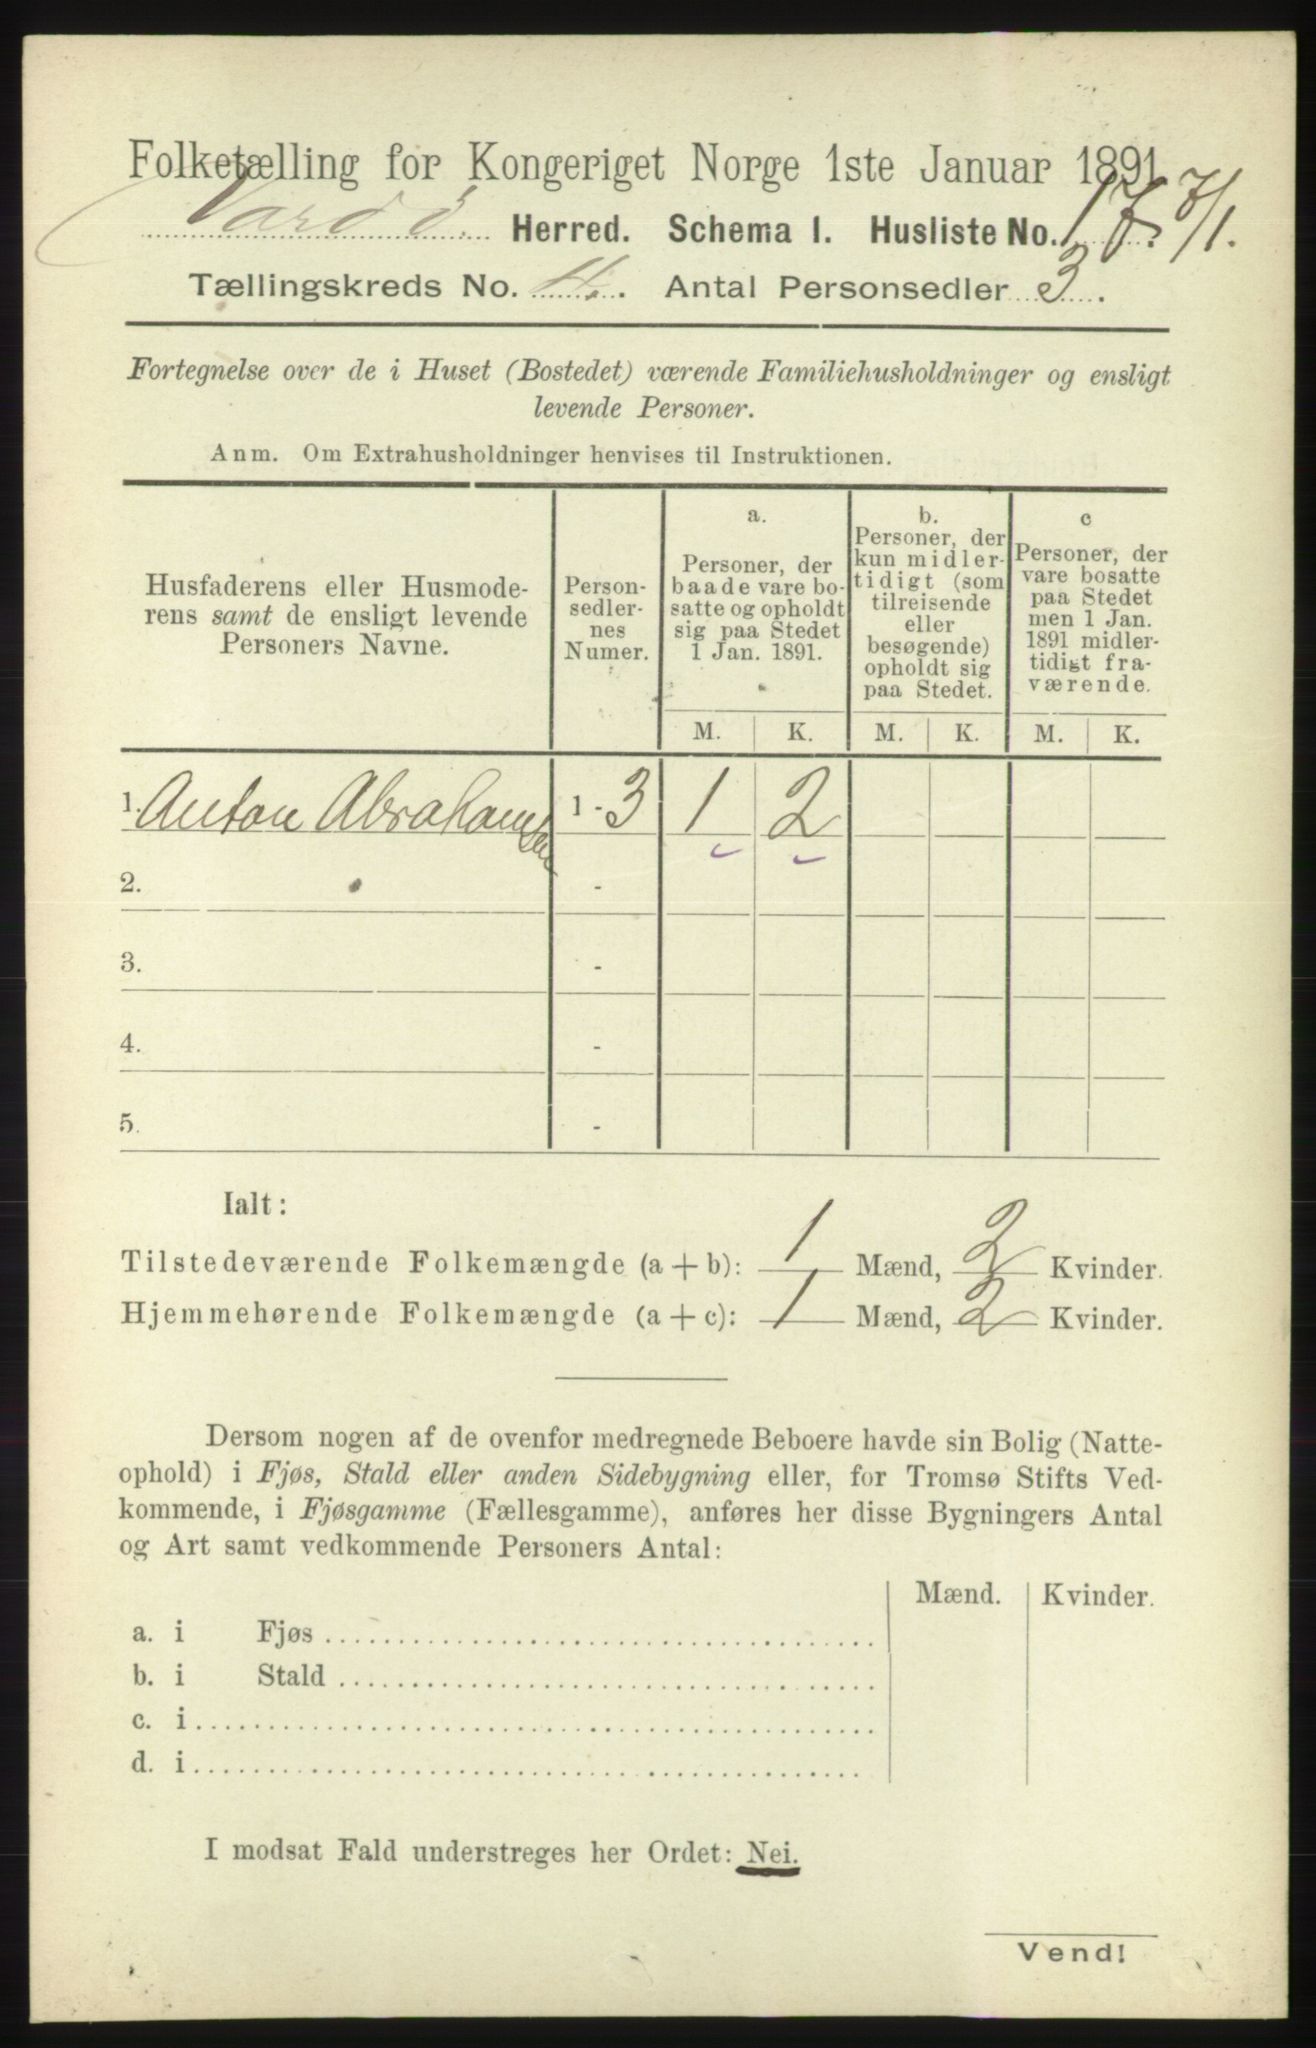 Folketælling for Kongeriget Norge 1ste Januar 1891.
Vardö Herred. Schema I. Husliste No. 17. 7/1.
Tællingskreds No. 4. Antal Personsedler 3.
Fortegnelse over de i Huset (Bostedet) værende Familiehusholdninger og ensligt
levende Personer.
Anm. Om Extrahusholdninger henvises til Instruktionen.
Husfaderens eller Husmode-
rens samt de ensligt levende
Personers Navne.
Person-
sedler-
nes
Numer.
a.
Personer, der
baade vare bo-
satte og opholdt
sig paa Stedet
1 Jan. 1891.
b.
Personer, der
kun midler-
tidigt (som
tilreisende
eller
besøgende)
opholdt sig
paa Stedet.
c
Personer, der
vare bosatte
paa Stedet
men 1 Jan.
1891 midler-
tidigt fra-
værende.
M. K. M. K. M. K.
1. Anton Abrahamsen 1 - 3 1 2
2. -
3. -
4. -
5. -
Ialt:
Tilstedeværende Folkemængde (a + b): 1 Mænd, 2 Kvinder.
Hjemmehørende Folkemængde (a + c): 1 Mænd, 2 Kvinder.
Dersom nogen af de ovenfor medregnede Beboere havde sin Bolig (Natte-
ophold) i Fjøs, Stald eller anden Sidebygning eller, for Tromsø Stifts Ved-
kommende, i Fjøsgamme (Fællesgamme), anføres her disse Bygningers Antal
og Art samt vedkommende Personers Antal:
Mænd. Kvinder.
a. i Fjøs
b. i Stald
c. i
d. i
I modsat Fald understreges her Ordet: Nei.
Vend!